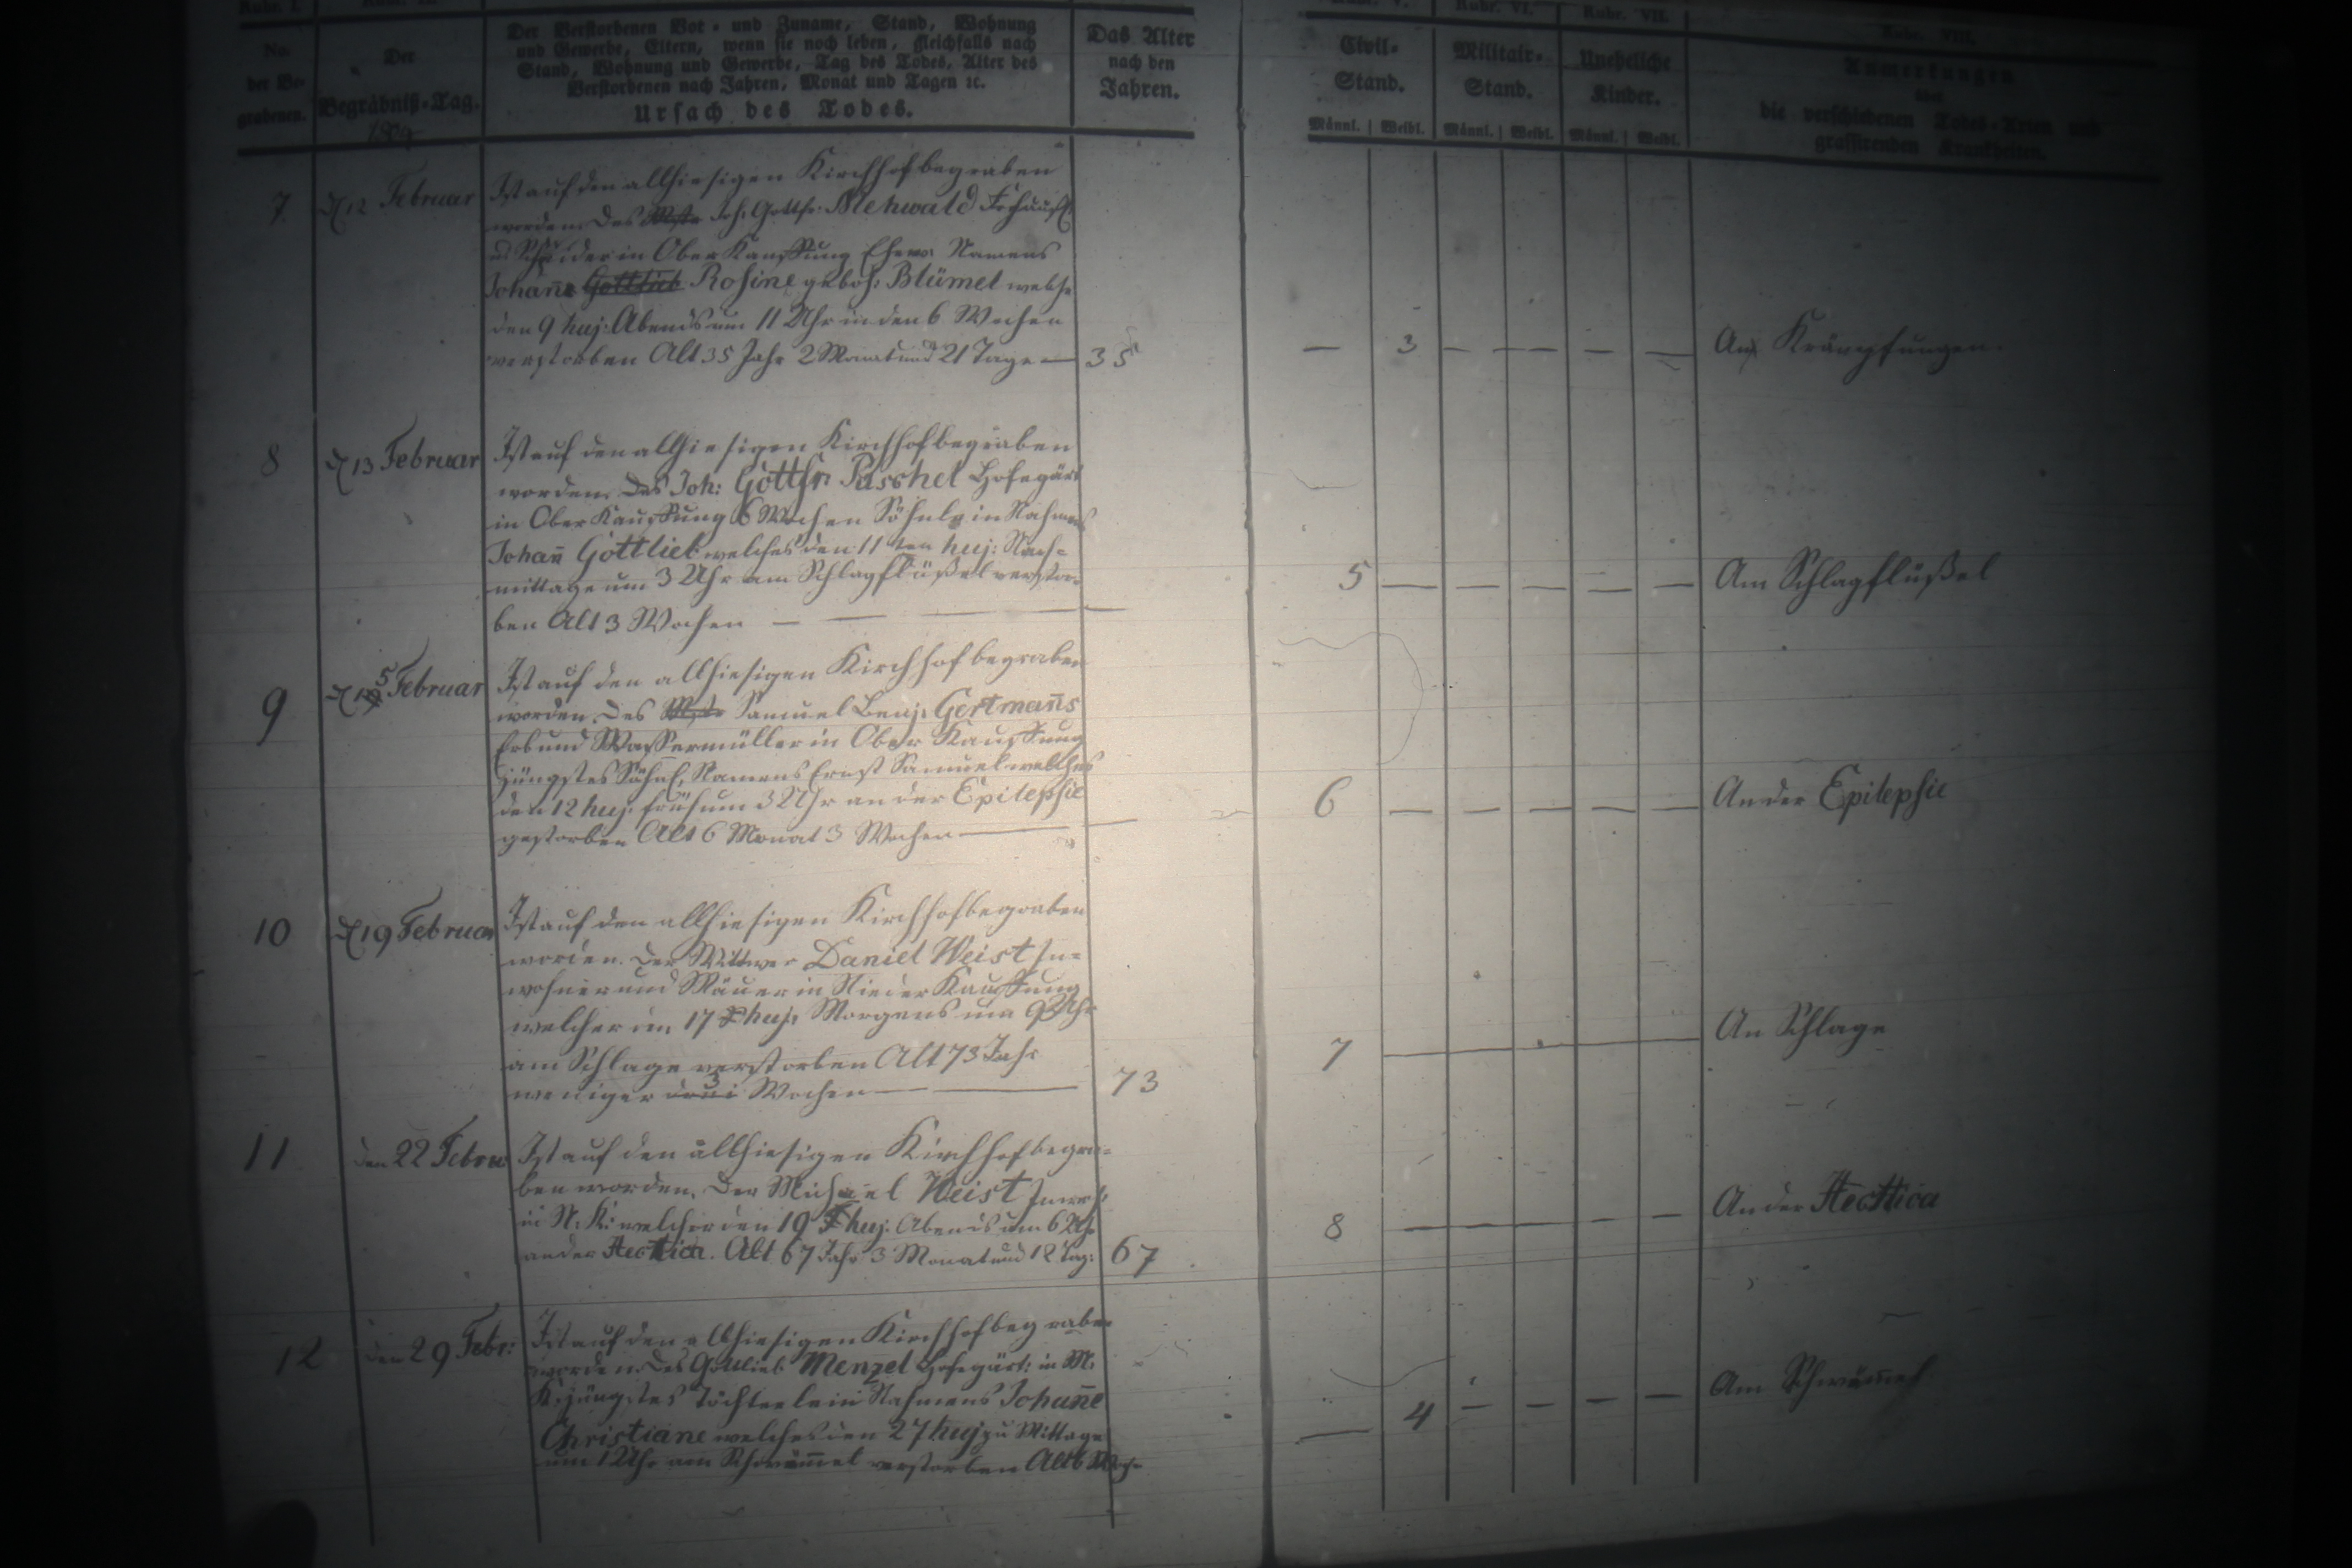 Rubr. I.
No.
der Be-
grabenen.
Der
Begräbniß-Tag.
Der Verstorbenen Vor- und Zuname, Stand, Wohnung
und Gewerbe, Eltern, wenn sie noch leben, gleichfalls nach
Stand, Wohnung und Gewerbe, Tag des Todes, Alter des
Verstorbenen nach Jahren, Monat und Tagen ꝛc.
Ursach des Todes.
Das Alter
nach den
Jahren.
Rubr. VI.
Rubr. VII.
Rubr. VIII.
Civil-
Stand.
Militair-
Stand.
Uneheliche
Kinder.
Männl. Weibl. Männl. Weibl. Männl. Weibl.
Anmerkungen
über
die verschiedenen Todes-Arten und
grassirenden Krankheiten.
7. d 12 Februar
Ist auf den allhiesigen Kirchhof begraben
worden. Des Joh. Gottfr: Mehwald Frhäusl.
u Schneider in Ober Kauffung Ehew. Namens
Johañe Rosine geboh: Blümel welche
den 9 huj: Abends um 11 Uhr in den 6 Wochen
verstorben Alt 35 Jahr 2 Monat und 21 Tage — 35
— 3 — — — — —
An Krämpfungen.
8 d 13 Februar
Ist auf den allhiesigen Kirchhof begraben
worden. Des Joh: Gottfr: Päschel Hofegärt
in Ober Kauffung 6 Wochen Söhnlein Nahmens
Johañ Gottlieb welches den 11ten huj: Nach-
mittage um 3 Uhr am Schlagflüßel verstor-
ben Alt 3 Wochen — — —
5 — — — — —
Am Schlagflüßel
9 d 15 Februar
Ist auf den allhiesigen Kirchhof begraben
worden. Des Samuel Benj. Gertmañs
Erb und Wassermüller in Ober Kauffung
jüngstes Söhnl. Namens Ernst Samuel welches
den 12 huj. früh um 3 Uhr an der Epilepsie
gestorben Alt 6 Monat 3 Wochen —
6 — — — — —
An der Epilepsie
10 d 19 Februar
Ist auf den allhiesigen Kirchhof begraben
worden. Der Wittwer Daniel Weist In-
wohner und Mäuer in Nieder Kauffung
welcher den 17 huj. Morgens um 9 Uhr
am Schlage verstorben Alt 73 Jahr
weniger 3 Wochen — — 73
7
An Schlage
11 den 22 Febru
Ist auf den allhiesigen Kirchhof begra-
ben worden. Der Michael Weist Inwoh.
in N. K: welcher den 19 huj: Abends um 6 Uhr
an der Hectica. Alt 67 Jahr 3 Monat und 18 Tag: 67
8 — — — — —
An der Hectica
12 den 29 Febr:
Ist auf den allhiesigen Kirchhof begraben
worden. Des Gottlieb Menzel Hofegärt: in M.
K. jüngstes Töchterlein Nahmens Johañe
Christiane welches den 27 huj zu Mittage
um 1 Uhr am Schwäm̃el verstorben Alt 6 Woch.
— 4 — — — —
Am Schwäm̃el